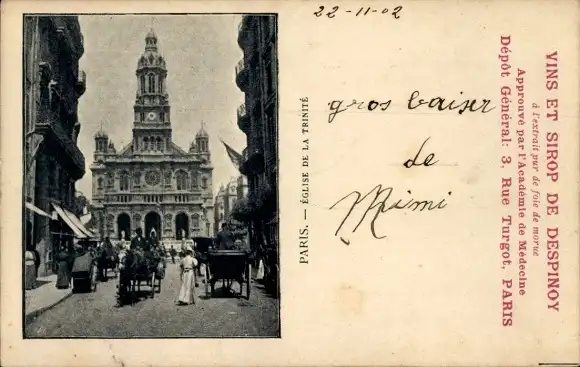 22-11-02
gros baiser
de
Mimi
PARIS. — ÉGLISE DE LA TRINITÉ
VINS ET SIROP DE DESPINOY
à l'extrait pur de foie de morue
Approuvé par l'Académie de Médecine
Dépôt Général: 3, Rue Turgot, PARIS